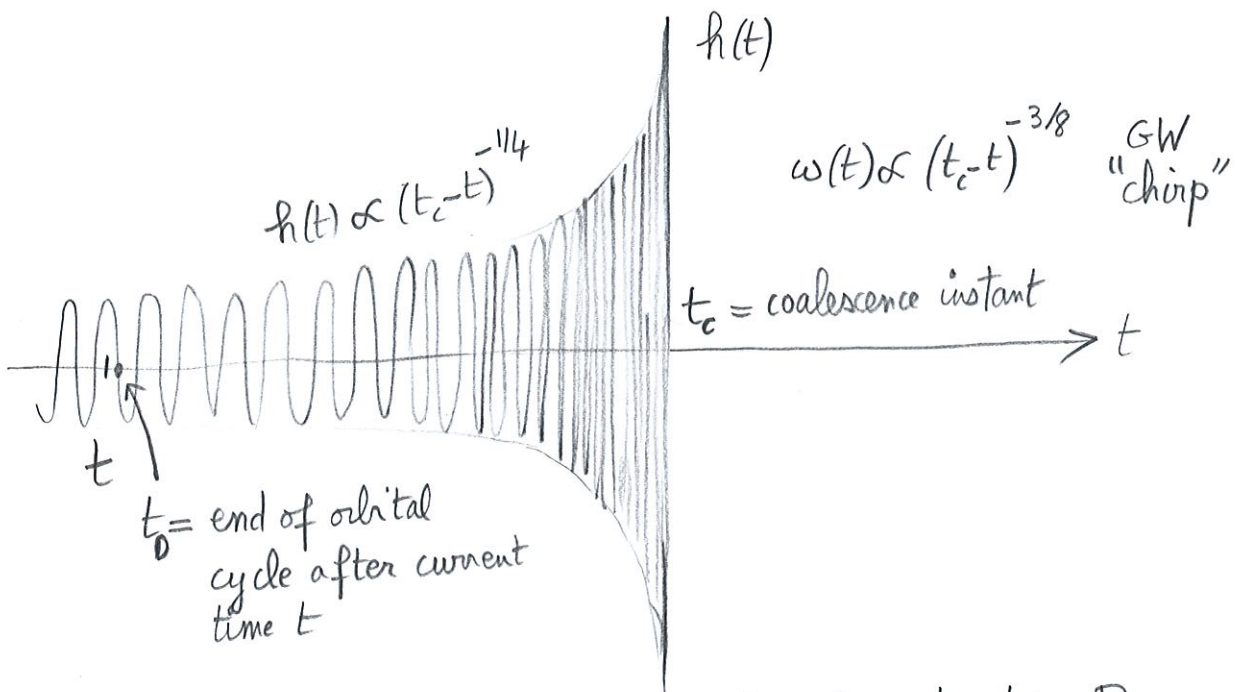 h(t)
h(t) ∝ (t_c-t)^{-1/4}
ω(t) ∝ (t_c-t)^{-3/8}
GW
"chirp"
t_c = coalescence instant
t
t
t_D = end of orbital
cycle after current
time t